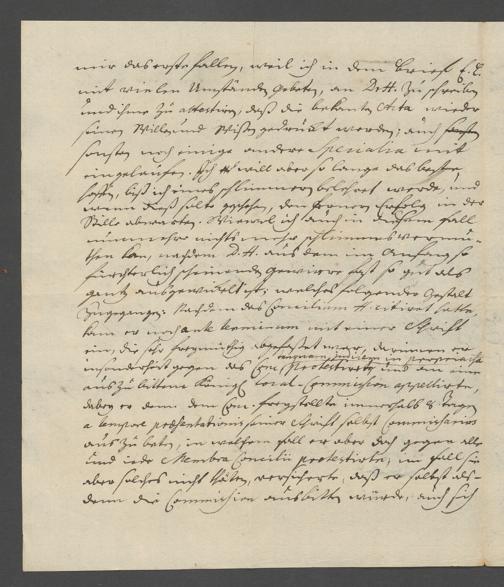 mir das erste fallen, weil ich in dem Brief E. E.
mit vielen Umständen gebeten, an D. H. zu schreiben
und ihme zu attestiren, daß die bekanten Acta wieder
seinen Willen und Wißen gedruckt worden; auch
sonsten noch einige andere Specialia mit
eingelaufen. Ich will aber so lange das beste
hoffen, biß ich eines schlimmern belehret werde, und
wenn dieß solte geschehen, den fernern Erfolg in der
Stille abwarten. Wiewol ich auch in diesem fall
nunmehro nichts mehr schlimmes vermu-
then kan, nachdem D. H. aus dem im Anfang so
fürchterlich scheinenden gewirre fast so gut als
gantz ausgewickelt ist; welches folgender Gestalt
zugegangen: Nachdem das Concilium H. citiret hatte,
kam er noch ante terminum mit einer Schrifft
ein, die sehr freymüthig abgefaßet war, darinnen er
insonderheit gegen das Con. protestirte und an eine
auszubittende Königl. Local-Commission appellirte,
dabey er denn dem Con. freystellte innerhalb 8 Tagen
a tempore præsentationis seiner Schrifft selbst Commissarios
auszubitten, in welchem fall er aber doch gegen alle
und iede Membra Concilii protestirte; im fall sie
aber solches nicht thäten, versicherte, daß er selbst als-
denn die Commission ausbitten würde, auch sich